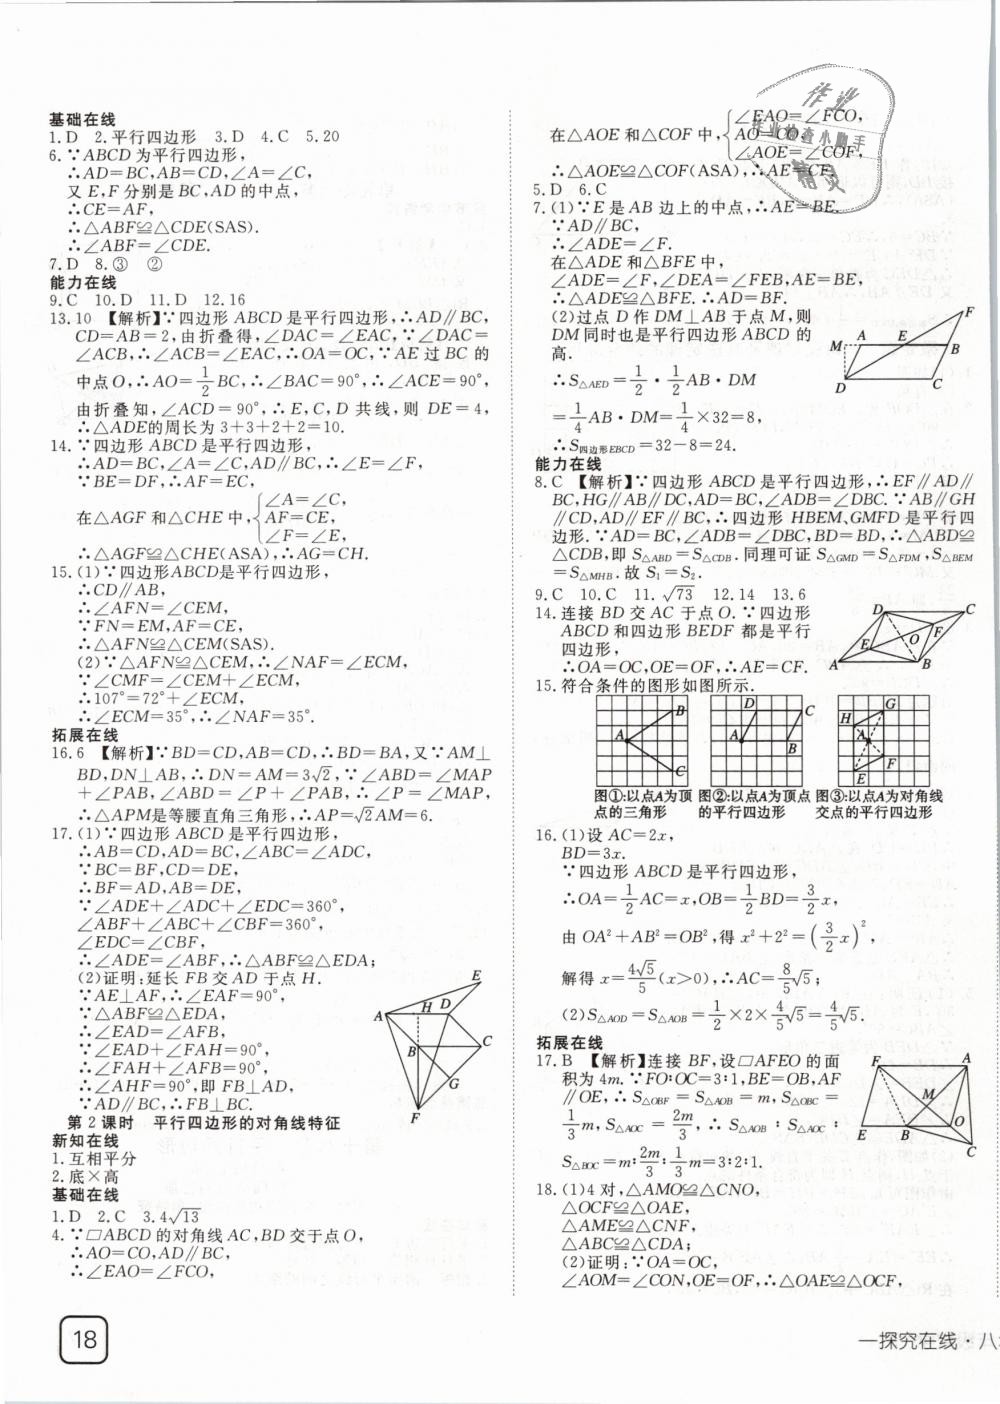 基础在线
1. D  2. 平行四边形  3. D  4. C  5. 20
6. ∵ABCD 为平行四边形,
∴AD=BC,AB=CD,∠A=∠C,
又 E,F 分别是 BC,AD 的中点,
∴CE=AF,
∴△ABF≌△CDE(SAS).
∴∠ABF=∠CDE.
7. D  8. ③  ②
能力在线
9. C  10. D  11. D  12. 16
13. 10 【解析】∵四边形 ABCD 是平行四边形,∴AD∥BC,
CD=AB=2,由折叠得,∠DAC=∠EAC,∵∠DAC=
∠ACB,∴∠ACB=∠EAC,∴OA=OC,∵AE 过 BC 的
中点 O,∴AO=1/2 BC,∴∠BAC=90°,∴∠ACE=90°,
由折叠知,∠ACD=90°,∴E,C,D 共线,则 DE=4,
∴△ADE的周长为 3+3+2+2=10.
14. ∵四边形 ABCD 是平行四边形,
∴AD=BC,∠A=∠C,AD∥BC,∴∠E=∠F,
∵BE=DF,∴AF=EC,
在△AGF 和△CHE 中,{∠A=∠C,
AF=CE,
∠F=∠E,
∴△AGF≌△CHE(ASA),∴AG=CH.
15. (1)∵四边形ABCD是平行四边形,
∴CD∥AB,
∴∠AFN=∠CEM,
∵FN=EM,AF=CE,
∴△AFN≌△CEM(SAS).
(2)∵△AFN≌△CEM,∴∠NAF=∠ECM,
∵∠CMF=∠CEM+∠ECM,
∴107°=72°+∠ECM,
∴∠ECM=35°,∴∠NAF=35°.
拓展在线
16. 6 【解析】∵BD=CD,AB=CD,∴BD=BA,又∵AM⊥
BD,DN⊥AB,∴DN=AM=3√2,∵∠ABD=∠MAP
+∠PAB,∠ABD=∠P+∠PAB,∴∠P=∠MAP,
∴△APM是等腰直角三角形,∴AP=√2AM=6.
17. (1)∵四边形 ABCD 是平行四边形,
∴AB=CD,AD=BC,∠ABC=∠ADC,
∵BC=BF,CD=DE,
∴BF=AD,AB=DE,
∵∠ADE+∠ADC+∠EDC=360°,
∠ABF+∠ABC+∠CBF=360°,
∠EDC=∠CBF,
∴∠ADE=∠ABF,∴△ABF≌△EDA;
(2)证明:延长 FB 交 AD 于点 H.
∵AE⊥AF,∴∠EAF=90°,
∵△ABF≌△EDA,
∴∠EAD=∠AFB,
∵∠EAD+∠FAH=90°,
∴∠FAH+∠AFB=90°,
∴∠AHF=90°,即 FB⊥AD,
∵AD∥BC,∴FB⊥BC.
E
A H D
B C
G
F
第 2 课时  平行四边形的对角线特征
新知在线
1. 互相平分
2. 底×高
基础在线
1. D  2. C  3. 4√13
4. ∵▱ABCD 的对角线 AC,BD 交于点 O,
∴AO=CO,AD∥BC,
∴∠EAO=∠FCO,
18
∠EAO=∠FCO,
在△AOE 和△COF 中,{AO=CO,
∠AOE=∠COF,
∴△AOE≌△COF(ASA),∴AE=CF.
5. D  6. C
7. (1)∵E 是 AB 边上的中点,∴AE=BE.
∵AD∥BC,
∴∠ADE=∠F.
在△ADE 和△BFE 中,
∠ADE=∠F,∠DEA=∠FEB,AE=BE,
∴△ADE≌△BFE.∴AD=BF.
(2)过点 D 作 DM⊥AB 于点 M,则
DM 同时也是平行四边形 ABCD 的
高.
∴S△AED=1/2·1/2 AB·DM
=1/4 AB·DM=1/4×32=8,
∴S四边形EBCD=32-8=24.
F
M A E B
D C
能力在线
8. C 【解析】∵四边形 ABCD 是平行四边形,∴EF∥AD∥
BC,HG∥AB∥DC,AD=BC,∠ADB=∠DBC.∵AB∥GH
∥CD,AD∥EF∥BC,∴四边形 HBEM、GMFD 是平行四
边形.∵AD=BC,∠ADB=∠DBC,BD=BD,∴△ABD≌
△CDB,即 S△ABD=S△CDB.同理可证 S△GMD=S△FDM,S△BEM
=S△MHB.故 S₁=S₂.
9. C  10. C  11. √73  12. 14  13. 6
14. 连接 BD 交 AC 于点 O.∵四边形
ABCD 和四边形 BEDF 都是平行
四边形,
∴OA=OC,OE=OF,∴AE=CF.
D C
E O F
A B
15. 符合条件的图形如图所示.
B
A
C
D C
A B
G
H
A
F
E
图①:以点A为顶 图②:以点A为顶点 图③:以点A为对角线
点的三角形 的平行四边形 交点的平行四边形
16. (1)设 AC=2x,
BD=3x.
∵四边形 ABCD 是平行四边形,
∴OA=1/2 AC=x,OB=1/2 BD=3/2 x,
由 OA²+AB²=OB²,得 x²+2²=(3/2 x)²,
解得 x=4√5/5(x>0),∴AC=8/5√5;
(2)S△AOD=S△AOB=1/2×2×4/5√5=4/5√5.
拓展在线
17. B 【解析】连接 BF,设▱AFEO 的面
积为 4m.∵FO:OC=3:1,BE=OB,AF
∥OE,∴S△OBF=S△AOB=m,S△OBC=
1/3 m,S△AOC=2m/3,∴S△AOB:S△AOC:
S△BOC=m:2m/3:1/3 m=3:2:1.
F A
M
E B O
C
18. (1)4 对,△AMO≌△CNO,
△OCF≌△OAE,
△AME≌△CNF,
△ABC≌△CDA;
(2)证明:∵OA=OC,
∠AOM=∠CON,OE=OF,∴△OAE≌△OCF,
一探究在线·八
作业
作业检查小助手
精灵